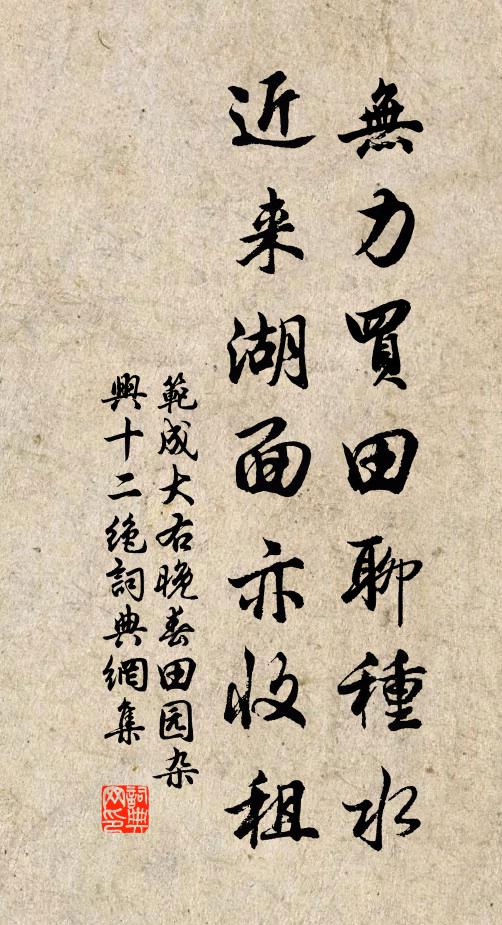 無力買田聊種水
近来湖面亦收租
範成大右晚春田园杂
興十二绝詞典網集
詞典网印